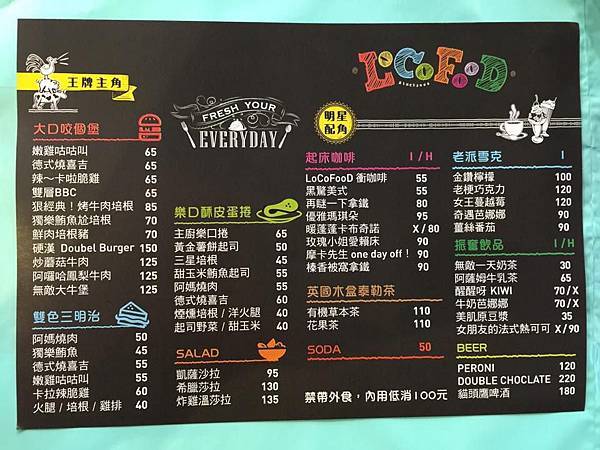 王牌主角
大口咬個堡
嫩雞咕咕叫 65
德式燒喜吉 65
辣～卡啦脆雞 65
雙層BBC 65
狠經典！烤牛肉培根 85
獨樂鮪魚尬培根 70
鮮肉培根豬 70
硬漢 Doubel Burger 150
炒蘑菇牛肉 125
阿囉哈鳳梨牛肉 125
無敵大牛堡 125
雙色三明治
阿媽燒肉 50
獨樂鮪魚 45
德式燒喜吉 55
嫩雞咕咕叫 50
卡拉辣脆雞 60
火腿 / 培根 / 雞排 40
FRESH YOUR
EVERYDAY
樂口酥皮蛋捲
主廚樂口捲 65
黃金薯餅起司 50
三星培根 45
甜玉米鮪魚起司 55
阿媽燒肉 55
德式燒喜吉 60
煙燻培根 / 洋火腿 40
起司野菜 / 甜玉米 40
SALAD
凱薩沙拉 95
希臘莎拉 135
炸雞溫莎拉 135
LoCoFooD
明星
配角
起床咖啡 I / H
LoCoFooD 衝咖啡 55
黑驚美式 55
再瞇一下拿鐵 80
優雅瑪琪朵 95
暖蓬蓬卡布奇諾 X / 80
玫瑰小姐愛賴床 90
摩卡先生 one day off！ 90
榛香被窩拿鐵 90
英國木盒泰勒茶
有機草本茶 110
花果茶 110
SODA 50
禁帶外食，內用低消100元
老派雪克 I
金鑽檸檬 100
老梗巧克力 120
女王蔓越莓 120
奇遇芭娜娜 120
薑絲番茄 120
振奮飲品 I / H
無敵一天奶茶 30
阿薩姆牛乳茶 65
醒醒呀 KIWI 70 / X
牛奶芭娜娜 70 / X
美肌原豆漿 35
女朋友的法式熱可可 X / 90
BEER
PERONI 120
DOUBLE CHOCLATE 220
貓頭鷹啤酒 180